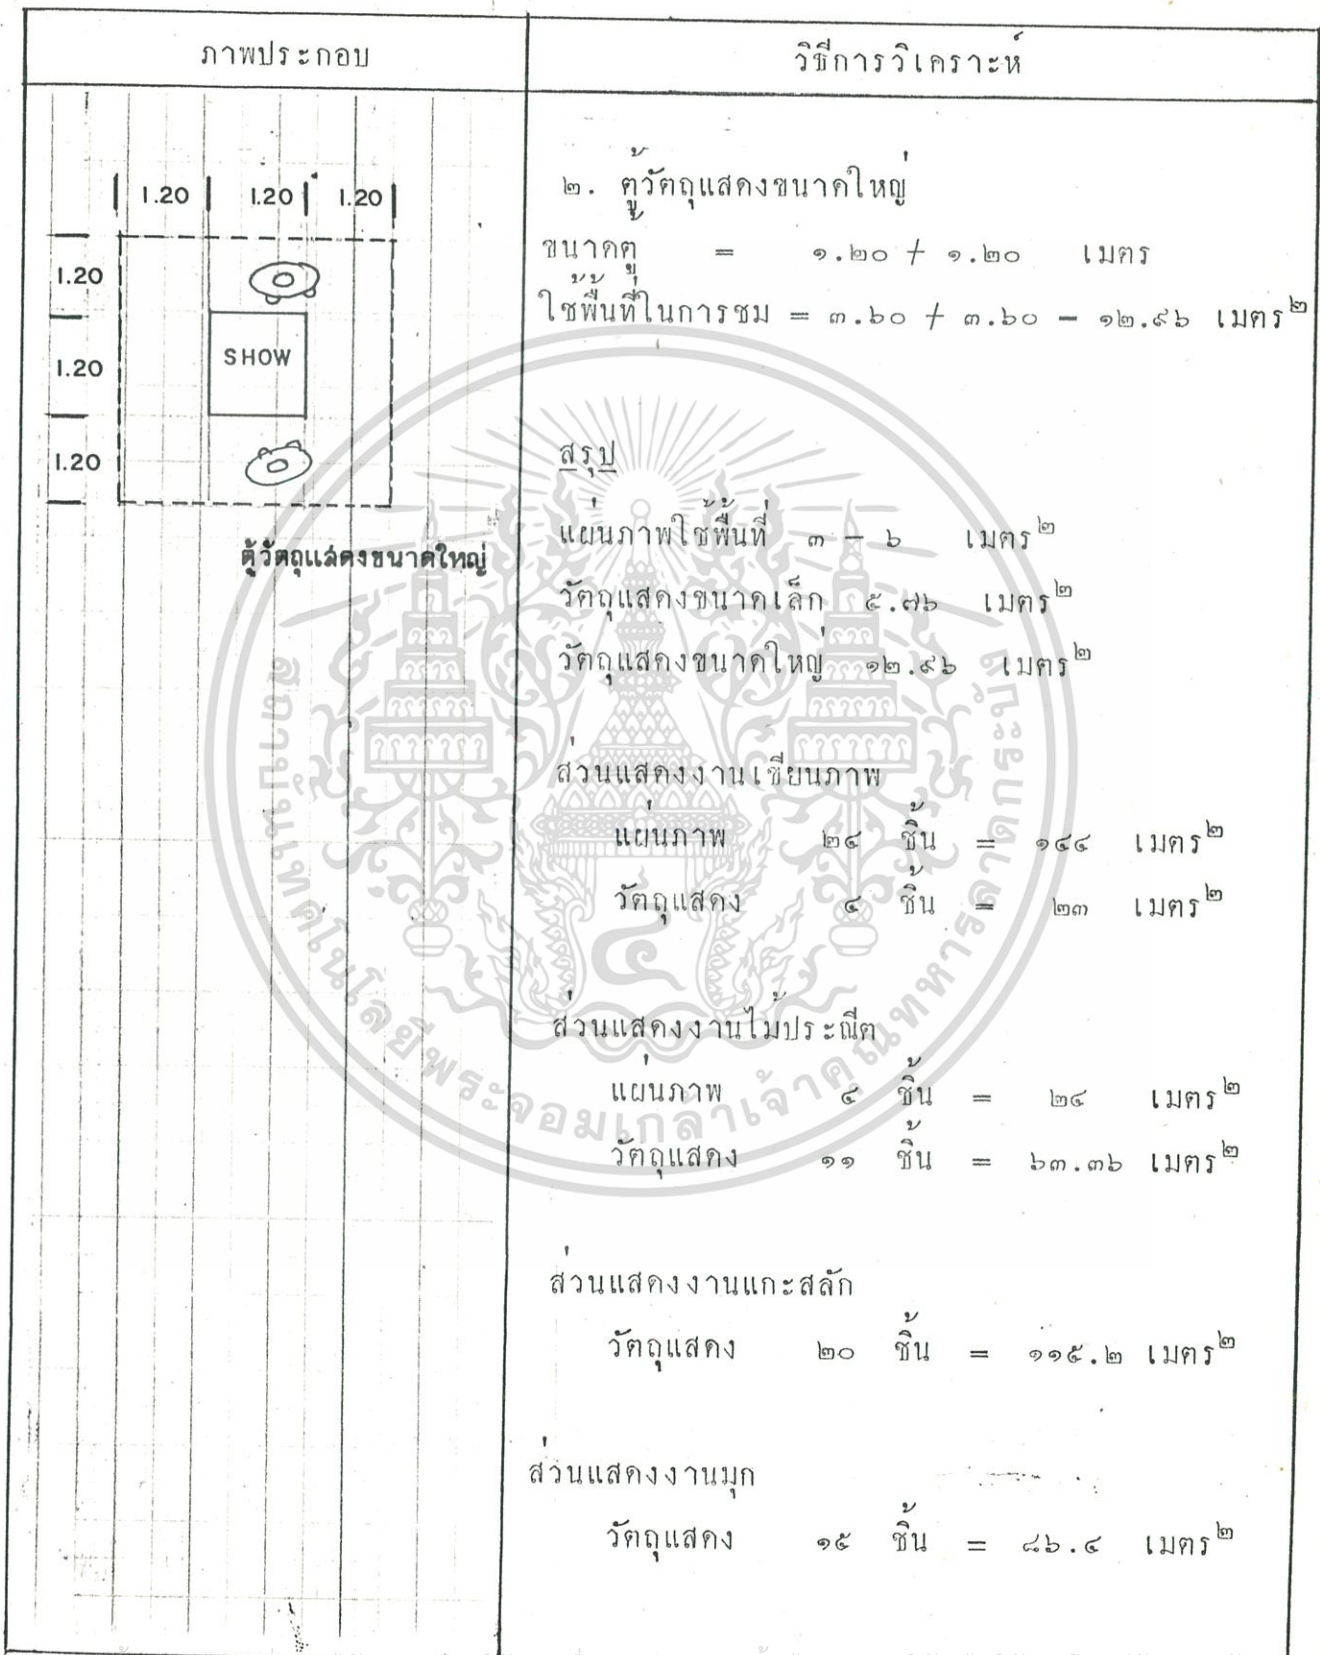 ภาพประกอบ
วิธีการวิเคราะห์
1.20 1.20 1.20
1.20
SHOW
1.20
1.20
ตู้วัตถุแสดงขนาดใหญ่
๒. ตู้วัตถุแสดงขนาดใหญ่
ขนาดตู้ = ๑.๒๐ + ๑.๒๐ เมตร
ใช้พื้นที่ในการชม = ๓.๖๐ + ๓.๖๐ = ๑๒.๙๖ เมตร๒
สรุป
แผ่นภาพใช้พื้นที่ ๓ – ๖ เมตร๒
วัตถุแสดงขนาดเล็ก ๕.๗๖ เมตร๒
วัตถุแสดงขนาดใหญ่ ๑๒.๙๖ เมตร๒
ส่วนแสดงงานเขียนภาพ
แผ่นภาพ ๒๔ ชิ้น = ๑๔๔ เมตร๒
วัตถุแสดง ๔ ชิ้น = ๒๓ เมตร๒
ส่วนแสดงงานไม้ประณีต
แผ่นภาพ ๔ ชิ้น = ๒๔ เมตร๒
วัตถุแสดง ๑๑ ชิ้น = ๖๓.๓๖ เมตร๒
ส่วนแสดงงานแกะสลัก
วัตถุแสดง ๒๐ ชิ้น = ๑๑๕.๒ เมตร๒
ส่วนแสดงงานมุก
วัตถุแสดง ๑๕ ชิ้น = ๘๖.๔ เมตร๒
สถาบันเทคโนโลยีพระจอมเกล้าเจ้าคุณทหารลาดกระบัง
๔